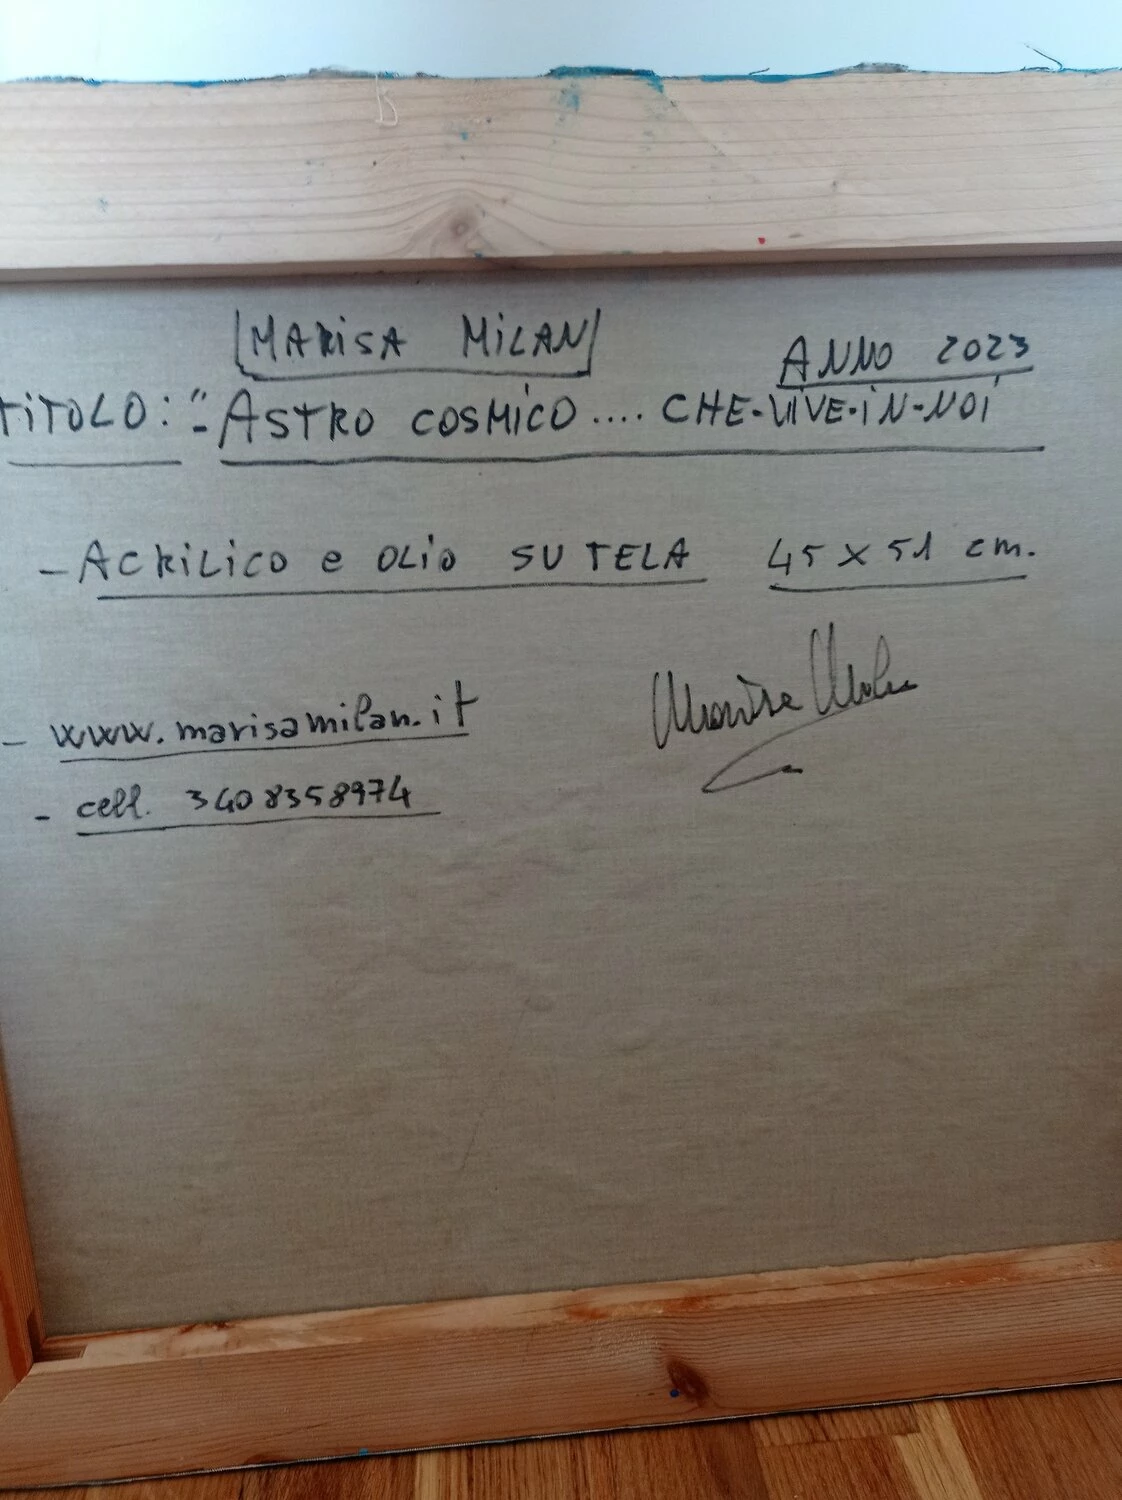 MARISA MILAN
ANNO 2023
TITOLO: "-ASTRO COSMICO .... CHE-VIVE-IN-NOI
- ACRILICO e OLIO SU TELA 45 x 51 cm.
- www.marisamilan.it
Marisa Milan
- cell. 3408358974